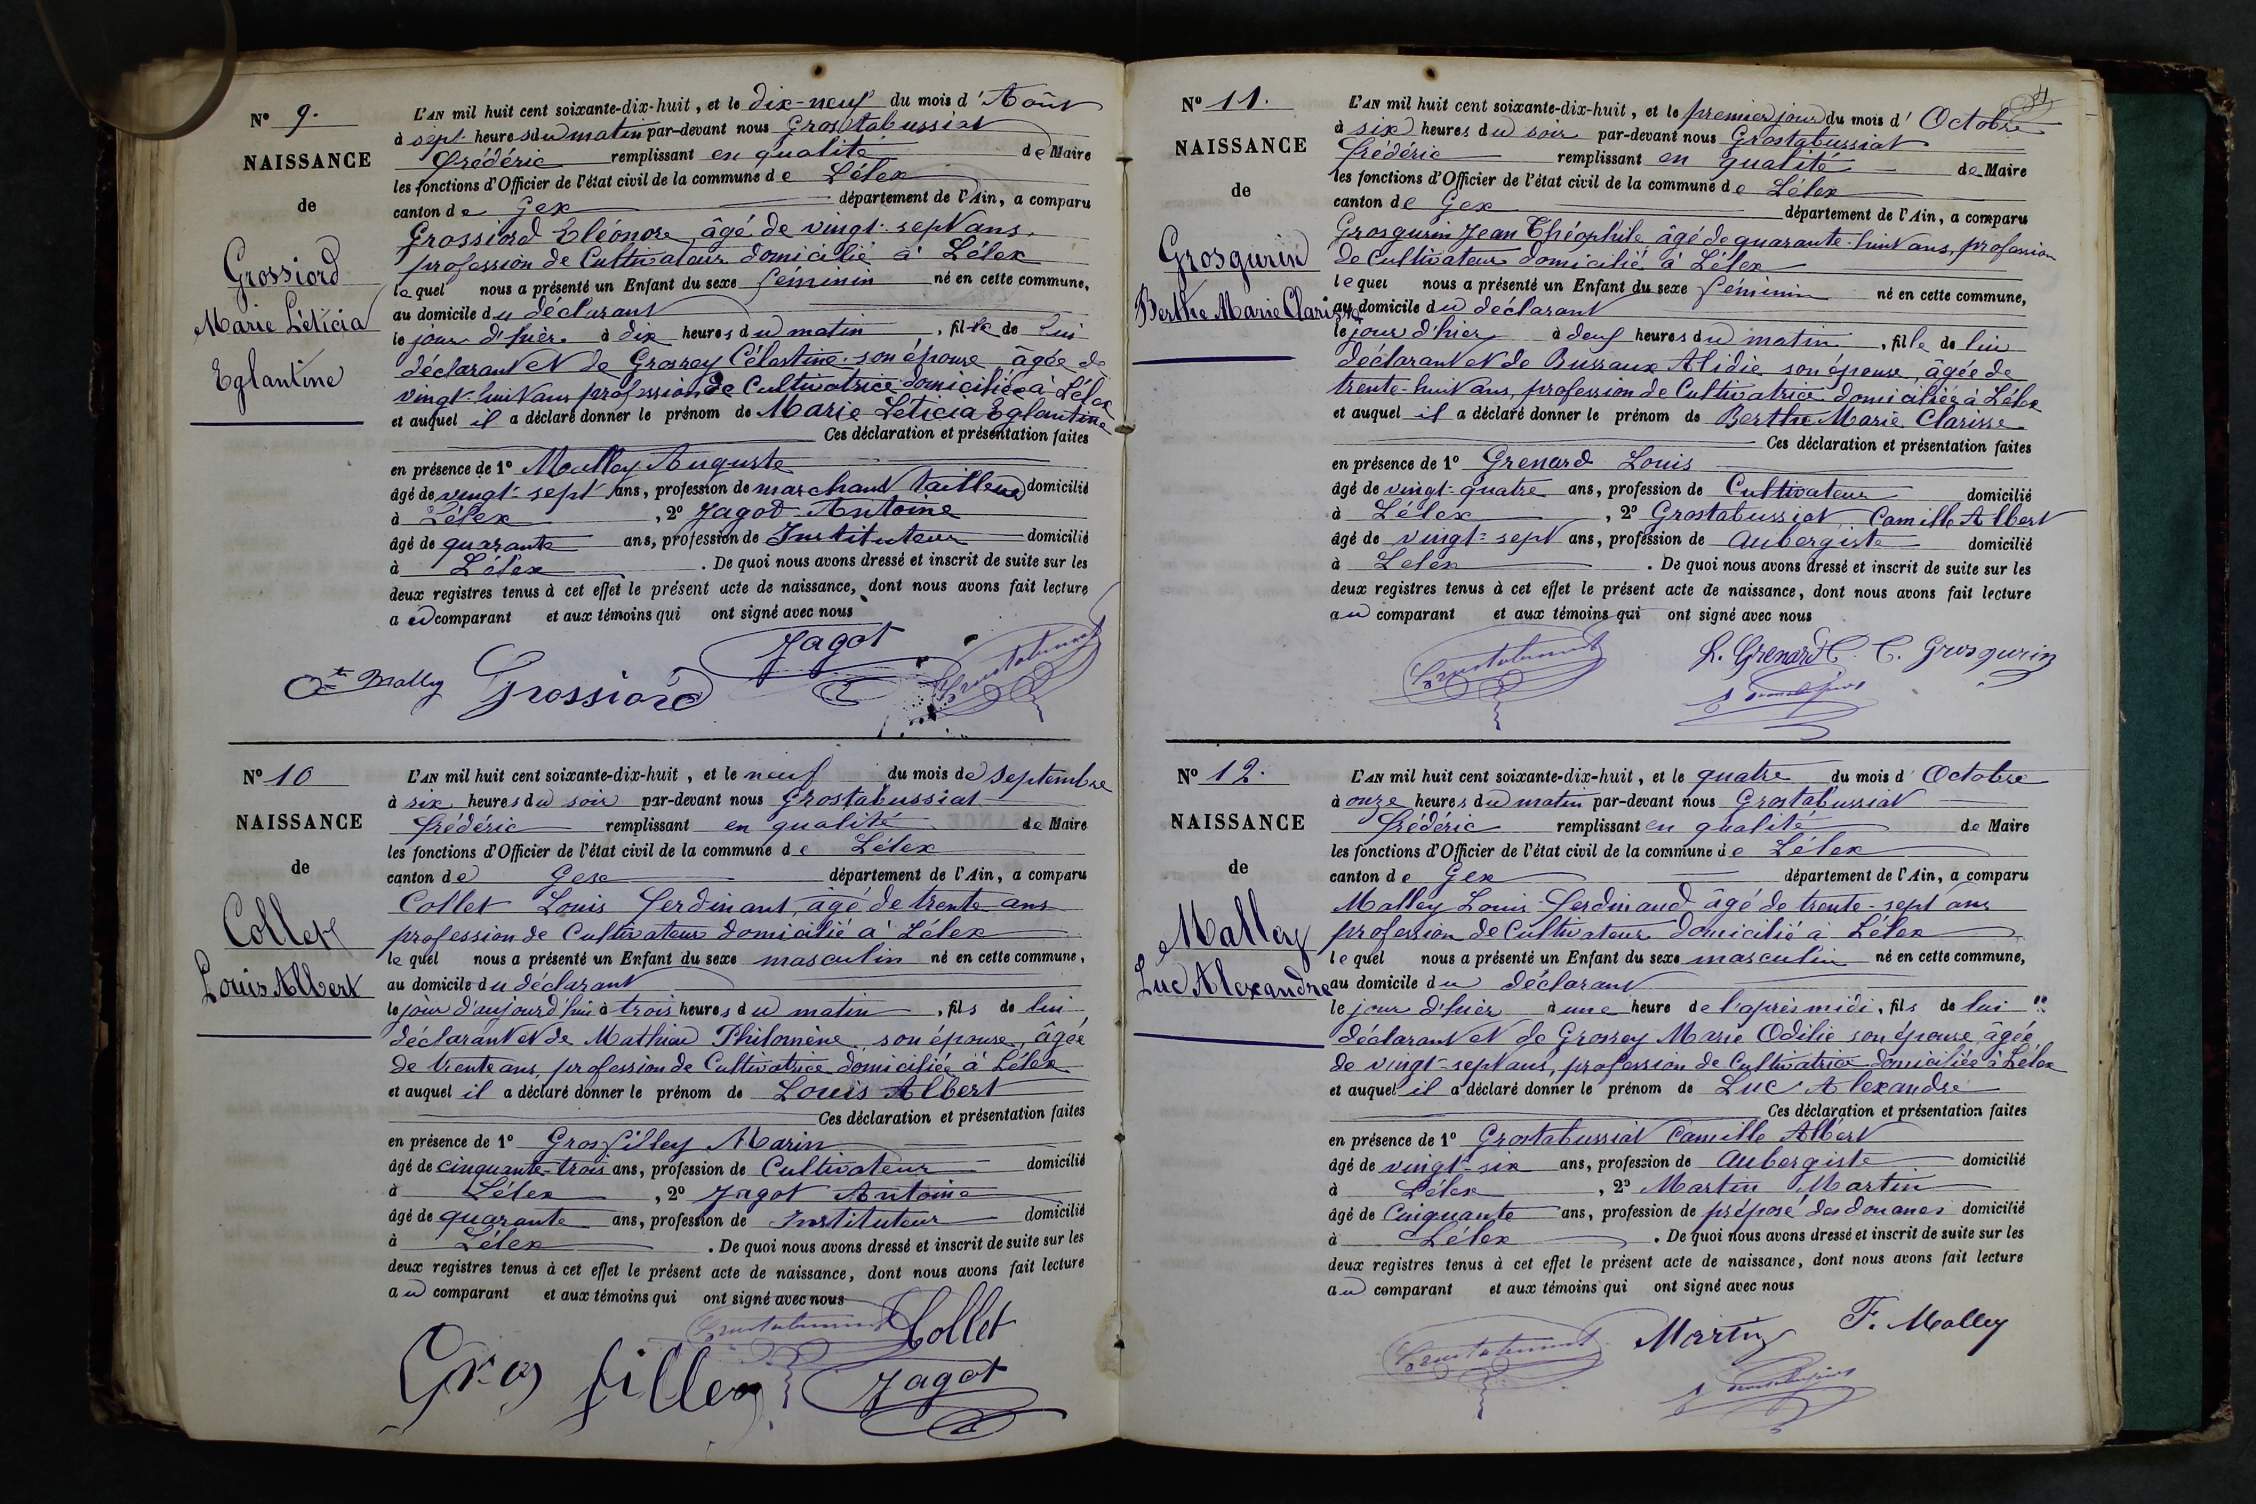 N° 9.
NAISSANCE
de
Grossiord
Marie Léticia
Eglantine
L'AN mil huit cent soixante-dix-huit, et le dix-neuf du mois d'Août
à sept heures du matin par-devant nous Grostabussiat
Frédéric remplissant en qualité de Maire
les fonctions d'Officier de l'état civil de la commune de Lélex
canton de Gex département de l'Ain, a comparu
Grossiord Eléonore âgé de vingt-sept ans,
profession de Cultivateur domicilié à Lélex
lequel nous a présenté un Enfant du sexe féminin né en cette commune,
au domicile du déclarant
le jour d'hier à dix heures du matin, fille de lui
déclarant et de Grosrey Célestine son épouse âgée de
vingt-huit ans profession de Cultivatrice domiciliée à Lélex
et auquel il a déclaré donner le prénom de Marie Leticia Eglantine
Ces déclaration et présentation faites
en présence de 1° Malley Auguste
âgé de vingt-sept ans, profession de marchand tailleur domicilié
à Lélex, 2° Jagot Antoine
âgé de quarante ans, profession de Instituteur domicilié
à Lélex. De quoi nous avons dressé et inscrit de suite sur les
deux registres tenus à cet effet le présent acte de naissance, dont nous avons fait lecture
au comparant et aux témoins qui ont signé avec nous
Jagot
Malley Grossiord
N° 10
NAISSANCE
de
Collet
Louis Albert
L'AN mil huit cent soixante-dix-huit, et le neuf du mois de septembre
à six heures du soir par-devant nous Grostabussiat
Frédéric remplissant en qualité de Maire
les fonctions d'Officier de l'état civil de la commune de Lélex
canton de Gex département de l'Ain, a comparu
Collet Louis Ferdinant, âgé de trente ans
profession de Cultivateur domicilié à Lélex
lequel nous a présenté un Enfant du sexe masculin né en cette commune,
au domicile du déclarant
le jour d'aujourd'hui à trois heures du matin, fils de lui
déclarant et de Mathieu Philomène son épouse, âgée
de trente ans, profession de Cultivatrice domiciliée à Lélex
et auquel il a déclaré donner le prénom de Louis Albert
Ces déclaration et présentation faites
en présence de 1° Grosfilley Marin
âgé de cinquante-trois ans, profession de Cultivateur domicilié
à Lélex, 2° Jagot Antoine
âgé de quarante ans, profession de Instituteur domicilié
à Lélex. De quoi nous avons dressé et inscrit de suite sur les
deux registres tenus à cet effet le présent acte de naissance, dont nous avons fait lecture
au comparant et aux témoins qui ont signé avec nous
Collet
Gros filley Jagot
N° 11.
NAISSANCE
de
Grosgurin
Berthe Marie Clarisse
L'AN mil huit cent soixante-dix-huit, et le premier jour du mois d'Octobre
à six heures du soir par-devant nous Grostabussiat
Frédéric remplissant en qualité de Maire
les fonctions d'Officier de l'état civil de la commune de Lélex
canton de Gex département de l'Ain, a comparu
Grosgurin Jean Théophile âgé de quarante-huit ans, profession
de Cultivateur domicilié à Lélex
lequel nous a présenté un Enfant du sexe féminin né en cette commune,
au domicile du déclarant
le jour d'hier à deux heures du matin, fille de lui
déclarant et de Bussaux Alidie son épouse, âgée de
trente-huit ans, profession de Cultivatrice domiciliée à Lélex
et auquel il a déclaré donner le prénom de Berthe Marie Clarisse
Ces déclaration et présentation faites
en présence de 1° Grenard Louis
âgé de vingt-quatre ans, profession de Cultivateur domicilié
à Lélex, 2° Grostabussiat Camille Albert
âgé de vingt-sept ans, profession de Aubergiste domicilié
à Lelex. De quoi nous avons dressé et inscrit de suite sur les
deux registres tenus à cet effet le présent acte de naissance, dont nous avons fait lecture
au comparant et aux témoins qui ont signé avec nous
L. Grenard Grosgurin
N° 12.
NAISSANCE
de
Malley
Luc Alexandre
L'AN mil huit cent soixante-dix-huit, et le quatre du mois d'Octobre
à onze heures du matin par-devant nous Grostabussiat
Frédéric remplissant en qualité de Maire
les fonctions d'Officier de l'état civil de la commune de Lélex
canton de Gex département de l'Ain, a comparu
Malley Louis Ferdinand âgé de trente-sept ans
profession de Cultivateur domicilié à Lélex
lequel nous a présenté un Enfant du sexe masculin né en cette commune,
au domicile du déclarant
le jour d'hier à une heure de l'après midi, fils de lui
déclarant et de Grosrey Marie Odilie son épouse âgée
de vingt-sept ans, profession de Cultivatrice domiciliée à Lélex
et auquel il a déclaré donner le prénom de Luc Alexandre
Ces déclaration et présentation faites
en présence de 1° Grostabussiat Camille Albert
âgé de vingt-six ans, profession de Aubergiste domicilié
à Lélex, 2° Martin Martin
âgé de Cinquante ans, profession de préposé des douanes domicilié
à Lélex. De quoi nous avons dressé et inscrit de suite sur les
deux registres tenus à cet effet le présent acte de naissance, dont nous avons fait lecture
au comparant et aux témoins qui ont signé avec nous
Martin F. Malley